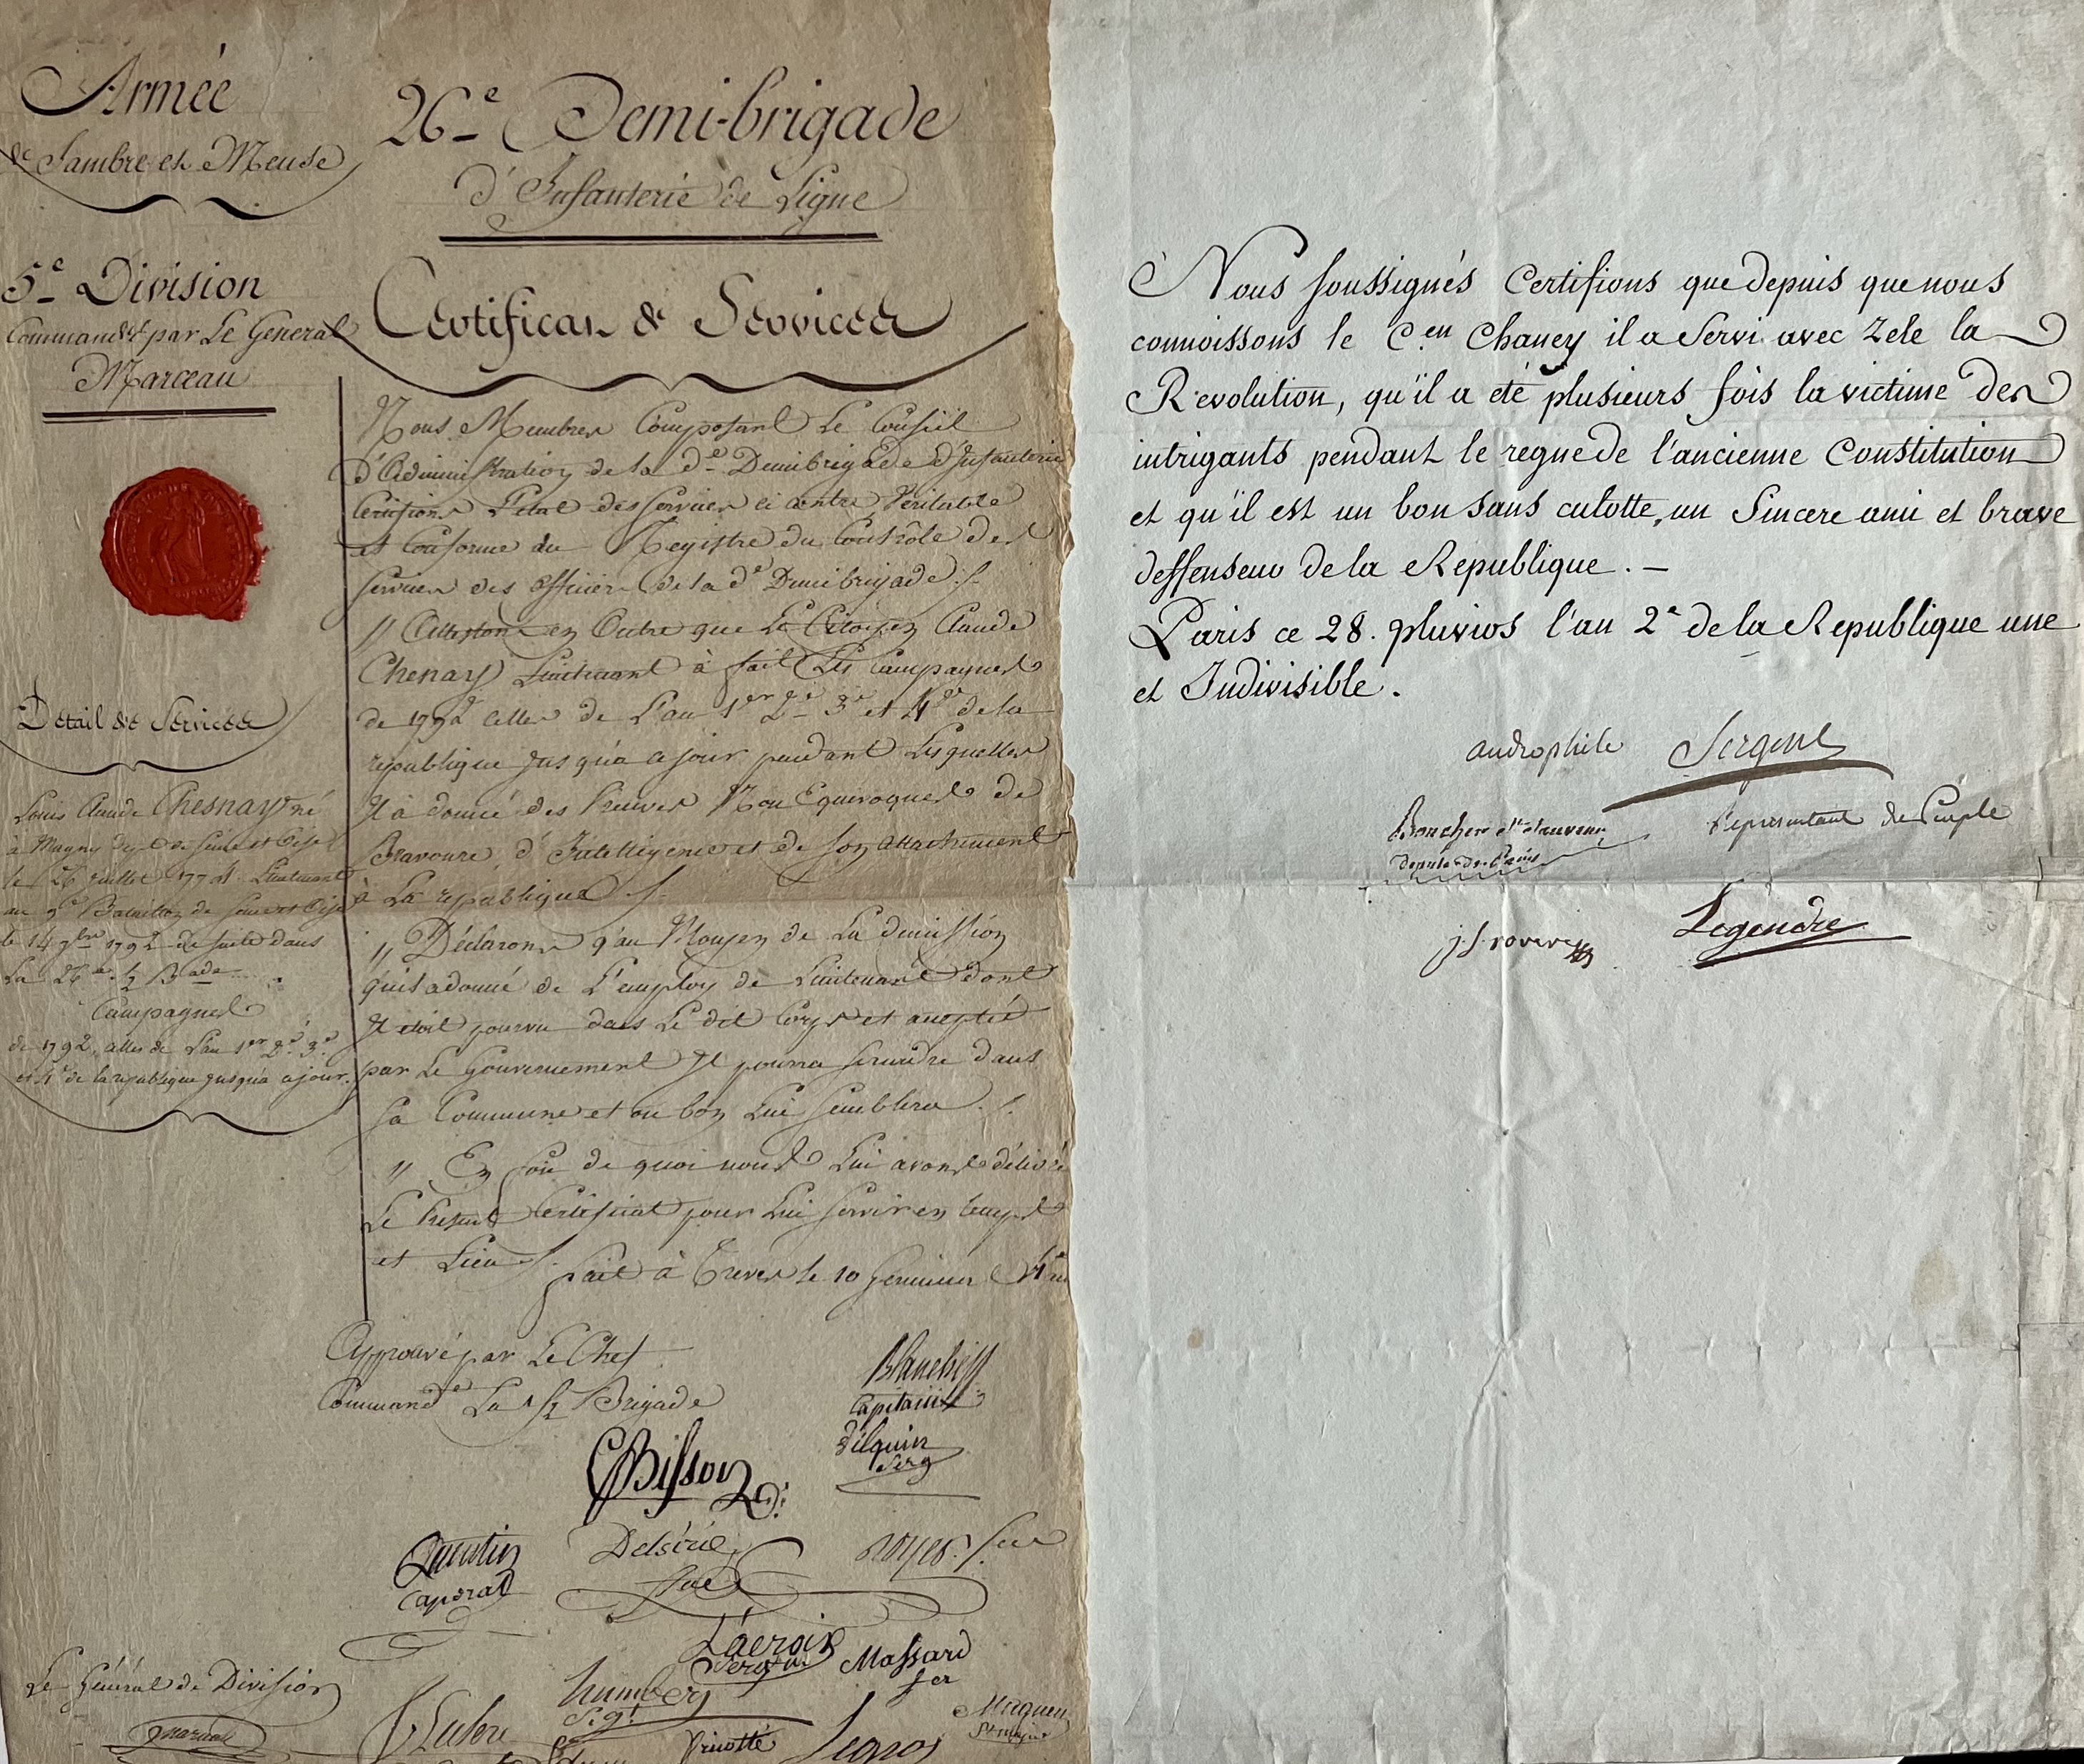 Armée
de Sambre et Meuse
5e Division
Commandée par Le General
Marceau
Détail de Services
Louis Claude Chesnay né
à Magny dept de Seine et Oise
le 26 juillet 1774 Lieutenant
au 9e Bataillon de Seine et Oise
le 14 7bre 1792 de suite dans
La 26e ½ Bade
Campagnes
de 1792, celles de L'an 1er 2e 3e
et 4e de la republique jusqu'a ce jour.
26e Demi-brigade
d'Infanterie de Ligne
Certificat de Services
Nous Membres Composant Le Conseil
d'Administration de la de Demibrigade d'Infanterie
Certifions L'etat des services ci contre Veritable
et Conforme au Registre du Contrôle des
services des officiers de la de Demibrigade ./.
// Attestons en Outre que Le Citoyen Claude
Chenay Lieutenant à fait Les Campagnes
de 1792 celles de L'an 1er 2e 3e et 4e de la
republique jusqu'a ce jour pendant Lesquelles
Il à donné des Preuves Non Equivoques de
Bravoure, d'Intelligence et de son attachement
à La republique ./.
// Déclarons qu'au Moyen de La demission
qu'il a donné de L'employ de Lieutenant dont
Il etoit pourvu dans Le dit Corps et acceptée
par Le Gouvernement Il pourra se rendre dans
sa Commune et ou bon Lui semblera ./.
// En foi de quoi nous Lui avons délivré
Le Present Certificat pour Lui servir en temps
et Lieu ./.
fait à Treves le 10 Germinal 4e
Approuvé par Le Chef
Commandt La ½ Brigade
Blanchet
Capitaine
Bisson
Delquin
Serg
Quentin
Caporal
Delsérie
Noyer
Lacroix
Sergent
Massard
Humbert
Sgt
Le Général de Division
Marceau
Lefevre
Prieotté
Legros
Nous soussignés Certifions que depuis que nous
connoissons le C.en Chaney il a Servi avec Zele la
Revolution, qu'il a eté plusieurs fois la victime des
intrigants pendant le regne de l'ancienne Constitution
et qu'il est un bon sans culotte, un Sincere ami et brave
deffenseur de la Republique. —
Paris ce 28. pluvios l'an 2e de la Republique une
et Indivisible.
androphile Sergent
Boucher St Sauveur Representant du Peuple
deputé de Paris
j S rovere Legendre